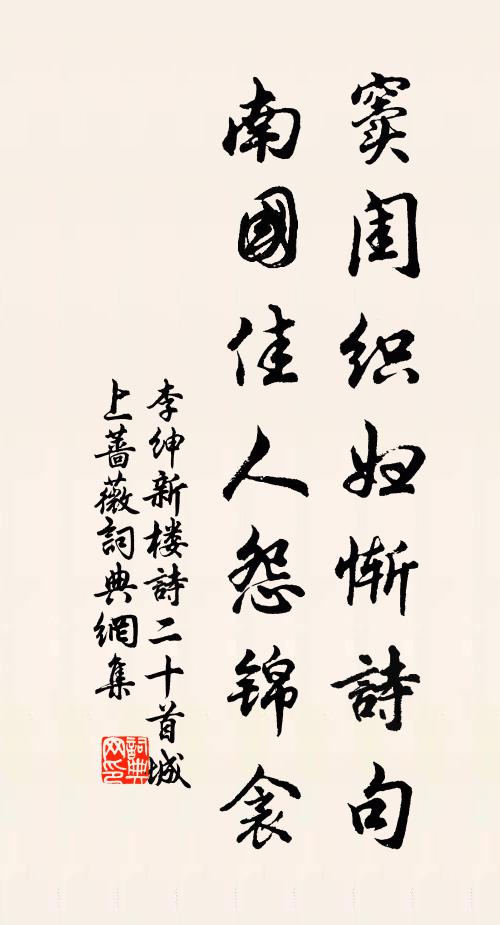 窦闺织妇惭詩句
南國佳人怨锦衾
李绅新楼詩二十首城
上蔷薇詞典網集
詞典
网